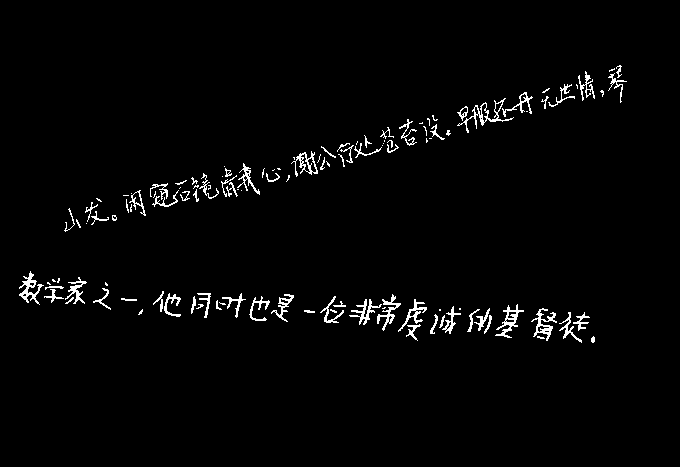 山发。闲窥石镜清我心,谢公行处苍苔没。早服还丹无世情,琴
数学家之一,他同时也是一位非常虔诚的基督徒.